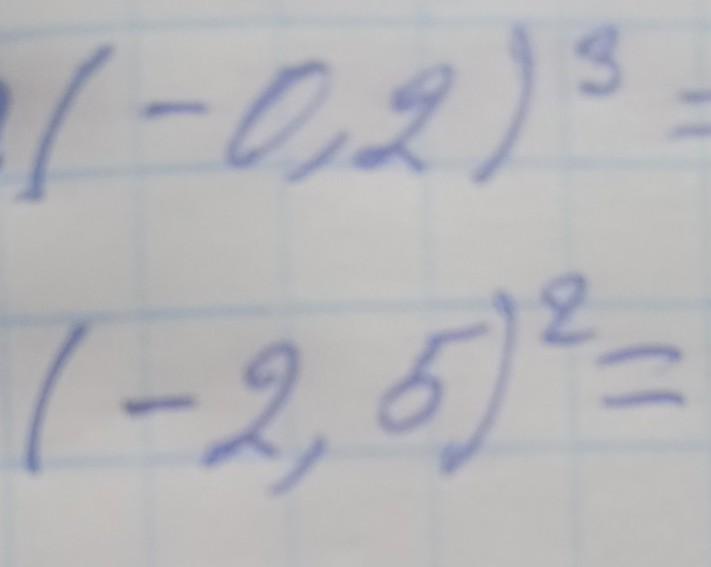 (-0,2)³ =
(-2,5)² =